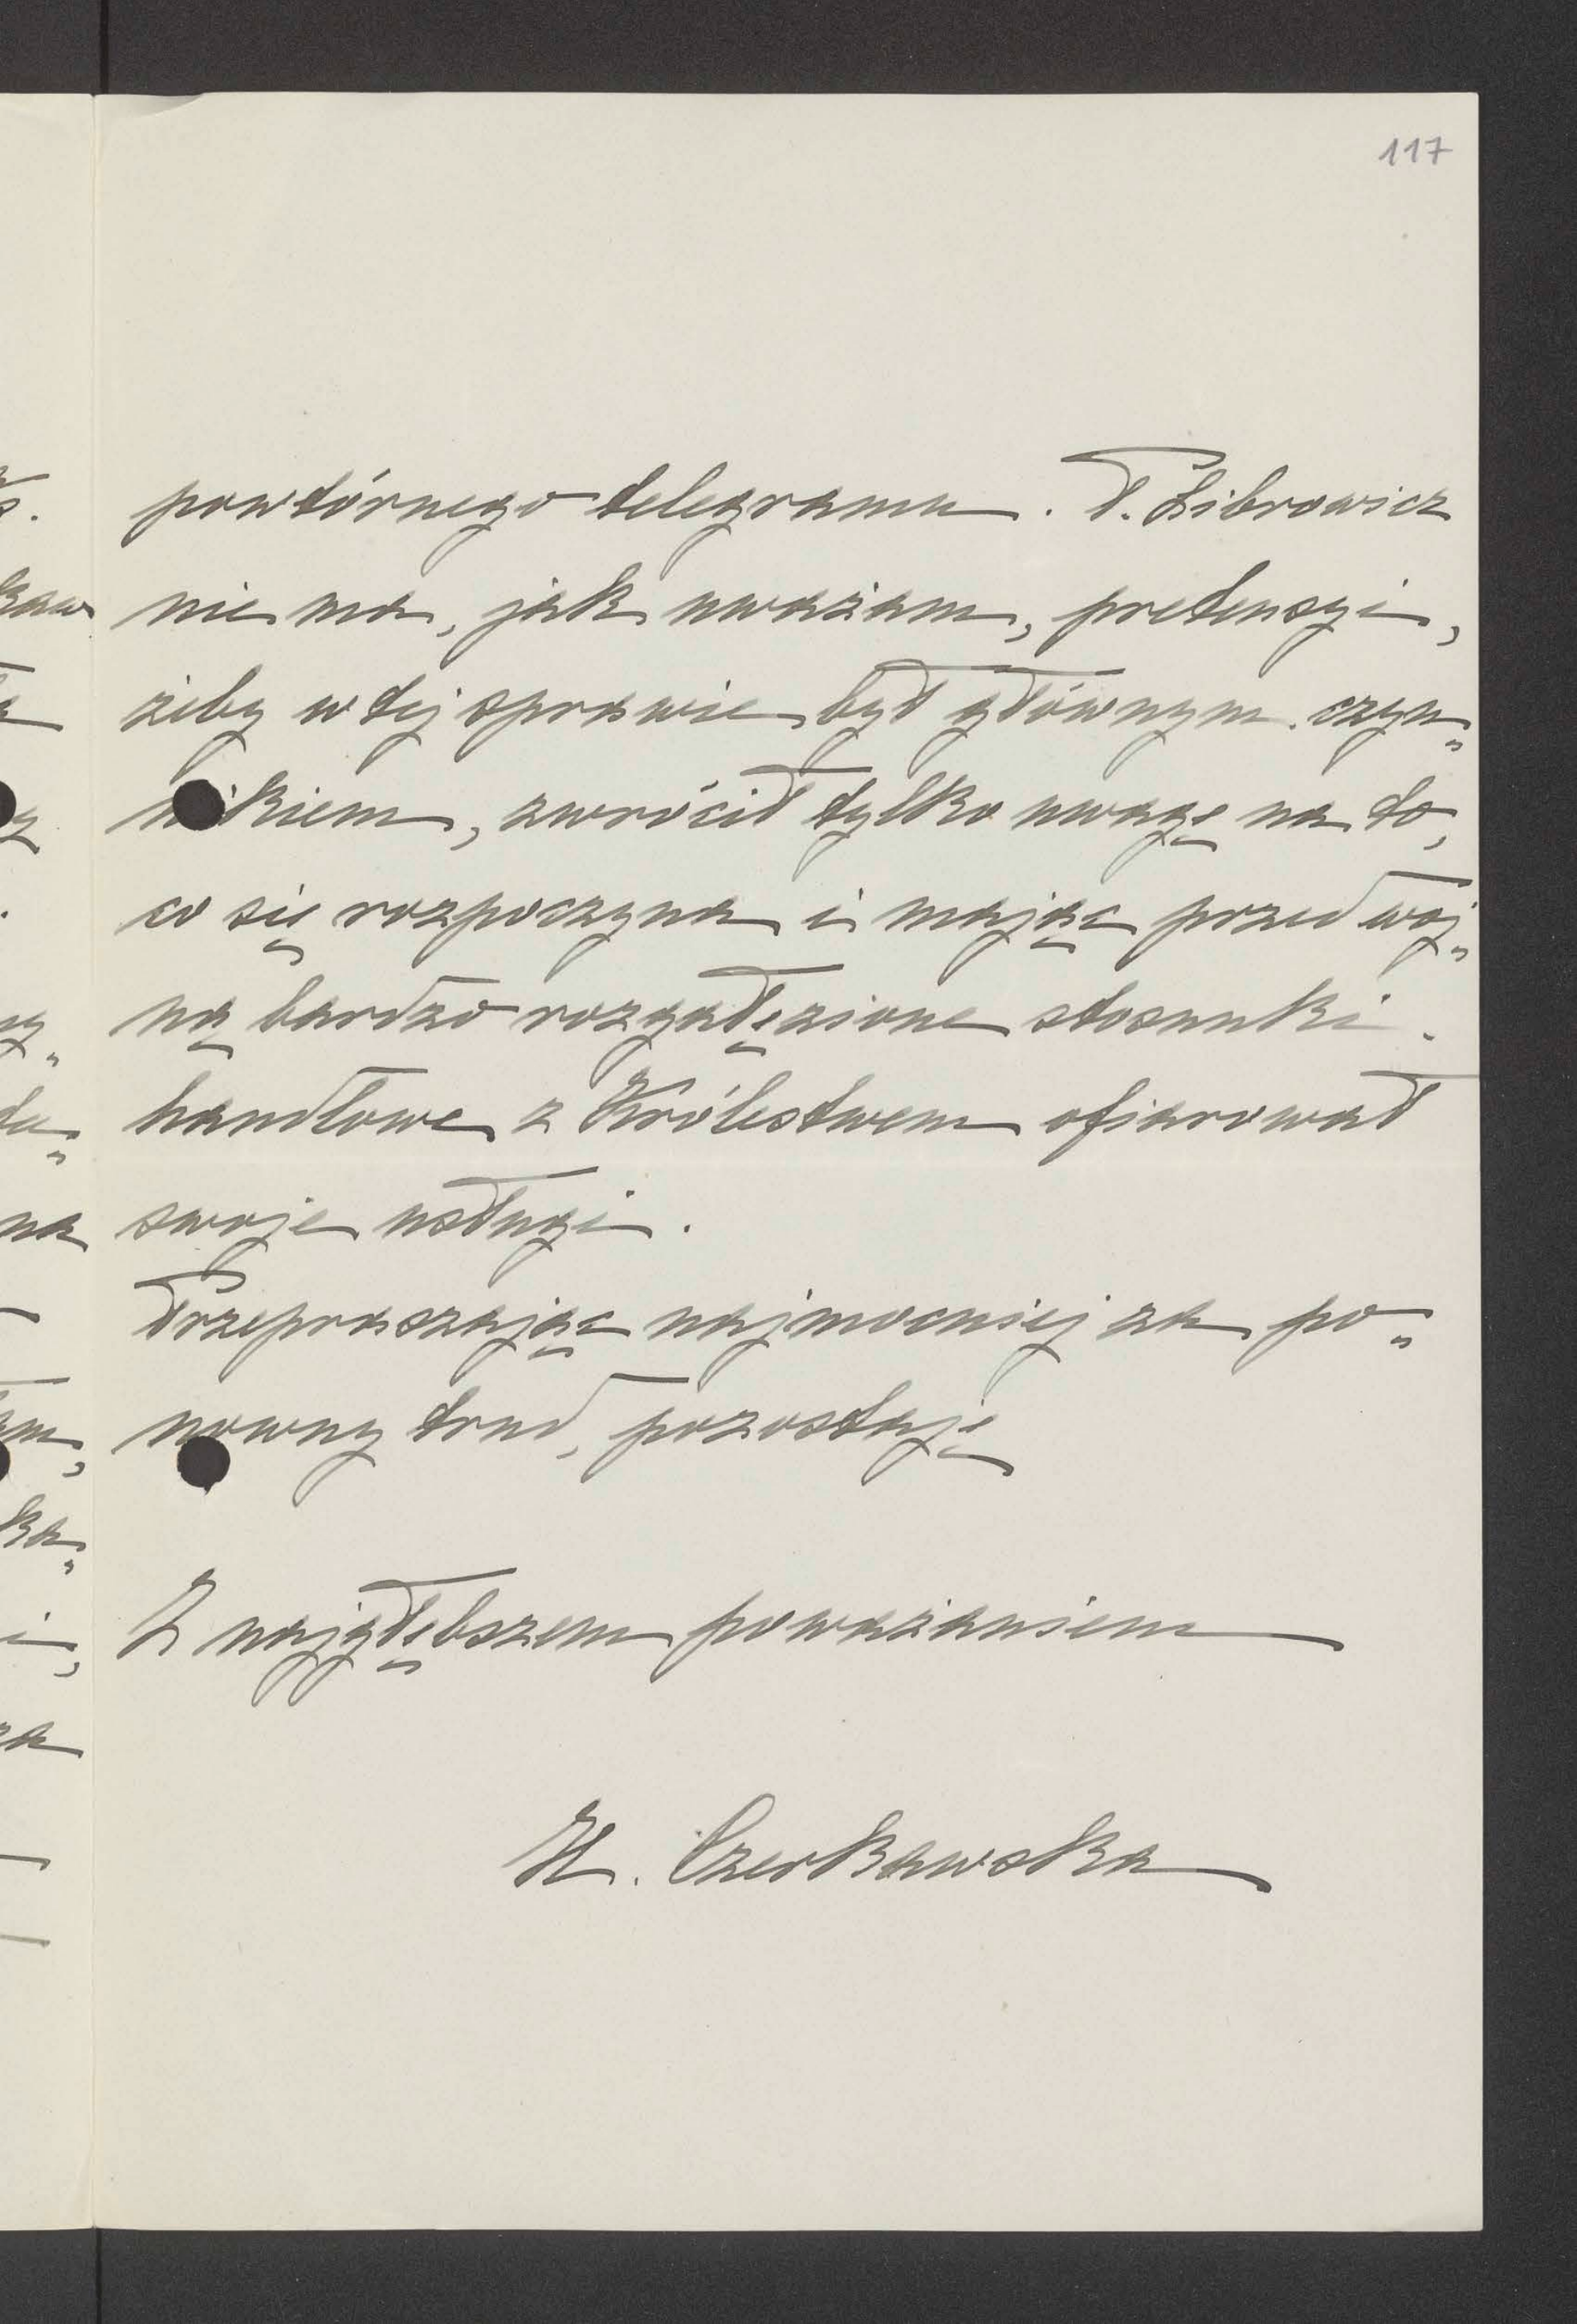 117
powtórnego telegramu. P. Librowicz
nie ma, jak uważam, pretensyi,
żeby w tej sprawie był głównym czyn„
nikiem, zwrócił tylko uwagę na to,
co się rozpoczyna i mając przed woj„
ną bardzo rozgałęzione stosunki
handlowe z Królestwem ofiarował
swoje usługi.
Przepraszając najmocniej za po„
nowny trud, pozostaję
Z najgłębszem poważaniem
H. Czerkawska